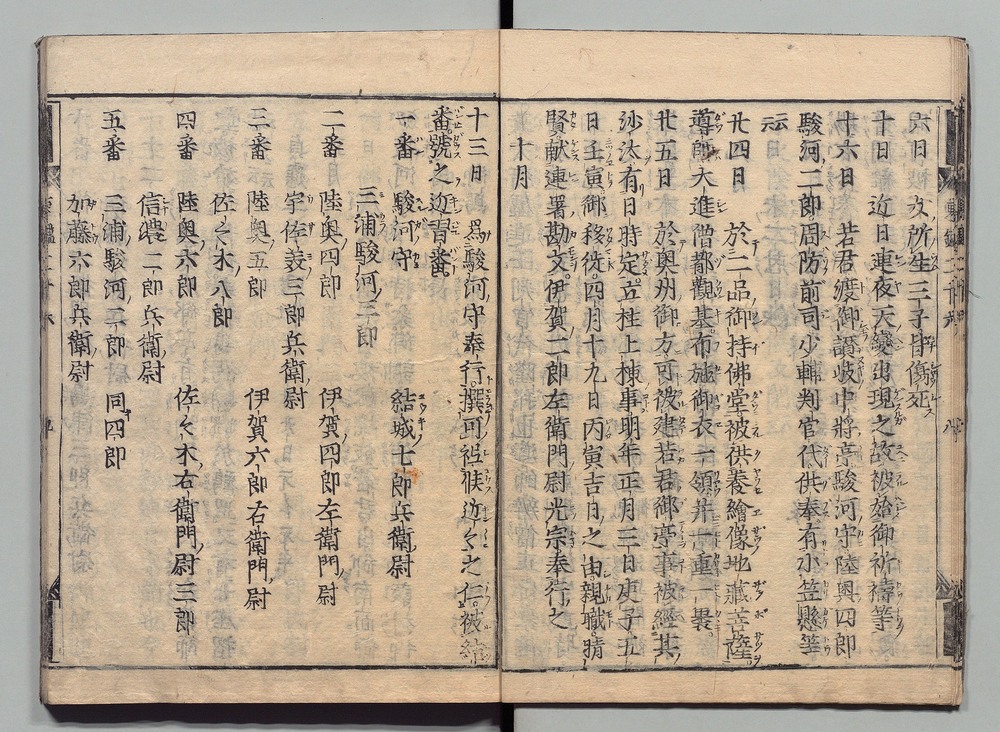 六日女所生三子皆傷死
十日近日連夜天變出現之故被始御祈禱等
十六日　若君渡御讃岐中將亭駿河守陸奥四郎
駿河二郎周防前司少輔判官代供奉有小笠懸等
云云
廿四日　於二品御持佛堂被供養繪像地藏菩薩
導師大進僧都觀基布施御衣一領并十重一裹
廿五日　於奥州御方可被建若君御亭事被經其
沙汰有日時定立柱上棟事明年正月二日庚子五
日壬寅御移徙四月十九日丙寅吉日之由親職晴
賢獻連署勘文伊賀二郎左衛門尉光宗奉行之
十月
十三日　爲駿河守奉行撰可祗候近々之仁被結
番號之近習番
一番　駿河守　結城七郎兵衛尉
三浦駿河三郎
二番　陸奥四郎　伊賀四郎左衛門尉
宇佐美三郎兵衛尉
三番　陸奥五郎　伊賀六郎右衛門尉
佐々木八郎
四番　陸奥六郎　佐々木右衛門尉三郎
信濃二郎兵衛尉
五番　三浦駿河二郎　同四郎
加藤六郎兵衛尉